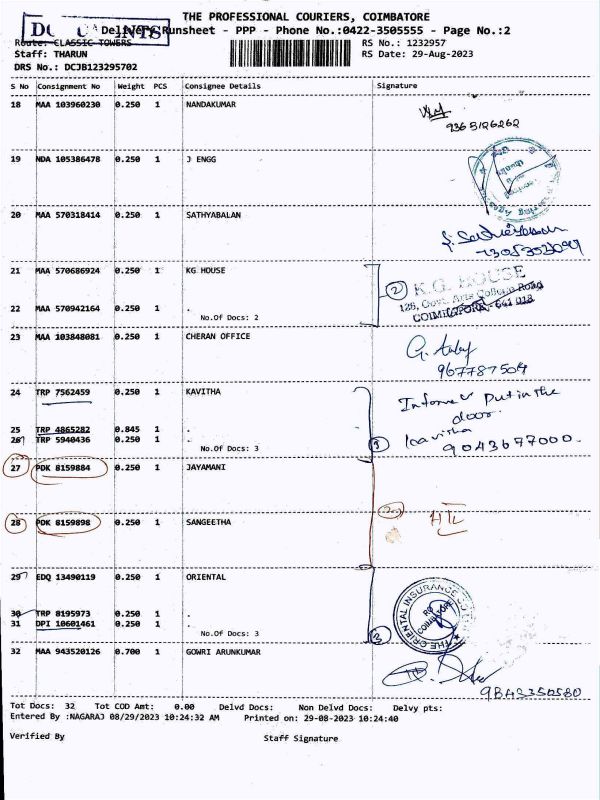 THE PROFESSIONAL COURIERS, COIMBATORE
Delivery Runsheet - PPP - Phone No.:0422-3505555 - Page No.:2
Route: CLASSIC TOWERS
RS No.: 1232957
Staff: THARUN
RS Date: 29-Aug-2023
DRS No.: DCJB123295702
S No Consignment No Weight PCS Consignee Details Signature
18 MAA 103960230 0.250 1 NANDAKUMAR
9365126262
19 NDA 105386478 0.250 1 J ENGG
20 MAA 570318414 0.250 1 SATHYABALAN
21 MAA 570686924 0.250 1 KG HOUSE
2 K.G. HOUSE
126, Govt. Arts College Road
COIMBATORE - 641 018
22 MAA 570942164 0.250 1 .
No.Of Docs: 2
23 MAA 103848081 0.250 1 CHERAN OFFICE
967787504
24 TRP 7562459 0.250 1 KAVITHA
Put in the
door
25 TRP 4865282 0.845 1 .
26 TRP 5940436 0.250 1 .
No.Of Docs: 3
3
9043677000
27 PDK 8159884 0.250 1 JAYAMANI
28 PDK 8159898 0.250 1 SANGEETHA
29 EDQ 13490119 0.250 1 ORIENTAL
30 TRP 8195973 0.250 1 .
31 DPI 10601461 0.250 1 .
No.Of Docs: 3
3
THE ORIENTAL INSURANCE
COIMBATORE
32 MAA 943520126 0.700 1 GOWRI ARUNKUMAR
Tot Docs: 32 Tot COD Amt: 0.00 Delvd Docs: Non Delvd Docs: Delvy pts:
Entered By :NAGARAJ 08/29/2023 10:24:32 AM Printed on: 29-08-2023 10:24:40
Verified By Staff Signature